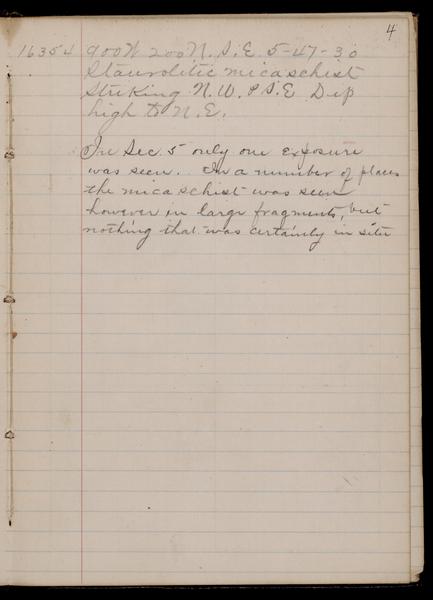 4
16354 900 W 200 N. S.E. 5-47-30
Staurolitic mica schist
Striking N.W. & S.E. Dip
high to N.E.
In Sec. 5 only one exposure
was seen. In a number of places
the mica schist was seen
however in large fragments, but
nothing that was certainly in situ